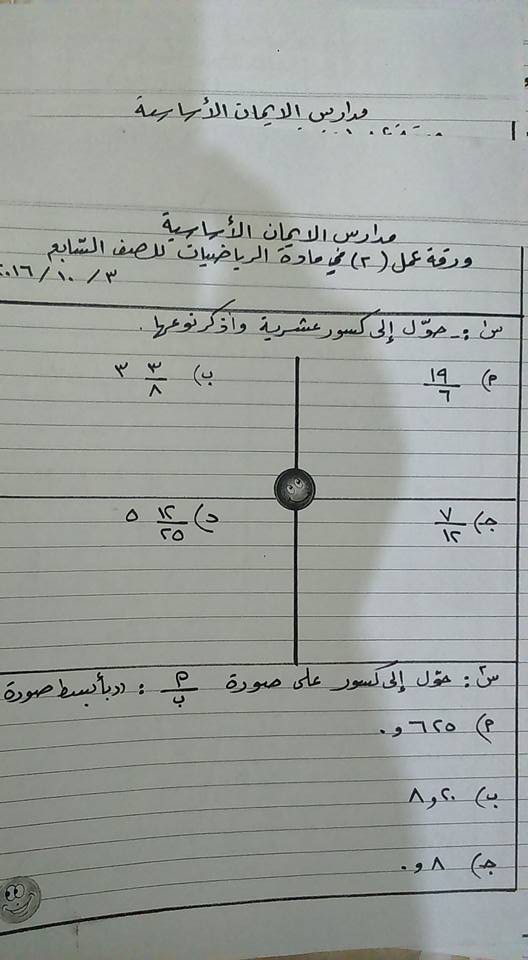 مدارس الايمان الأساسية
مدارس الايمان الأساسية
ورقة عمل (٢) في مادة الرياضيات للصف السابع
٣ / ١٠ / ٢٠١٦
س١: حوّل إلى كسور عشرية واذكر نوعها.
م) ١٩/٦ ب) ٣ ٣/٨
جـ) ٧/١٢ د) ٥ ١٢/٢٥
س٢: حوّل إلى كسور على صورة م/ب : ((بأبسط صورة
م) ٦٢٥و٠
ب) ٢٠و٨
جـ) ٨و٠